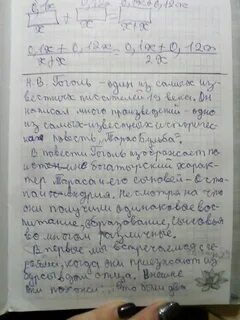 0,1х 0,12х
х х х+х
0,1х + 0,12х = 0,1х+0,12х
х+х 2х
Н.В. Гоголь - один из самых из-
вестных писателей 19 века. Он
написал много произведений - одно
из самых известных историческ
повесть „Тарас Бульба".
В повести Гоголь изображает по
богатырский харак-
тер Тараса и его сыновей - Оста-
па и Андрия. Не смотря на что
они получили одинаковое вос-
питание, образование, сыновья
во многом различные.
В первые мы встречаемся с ге-
роями, когда они приезжают из
бурсы в дом отца. Внешне
они похожи, это были два